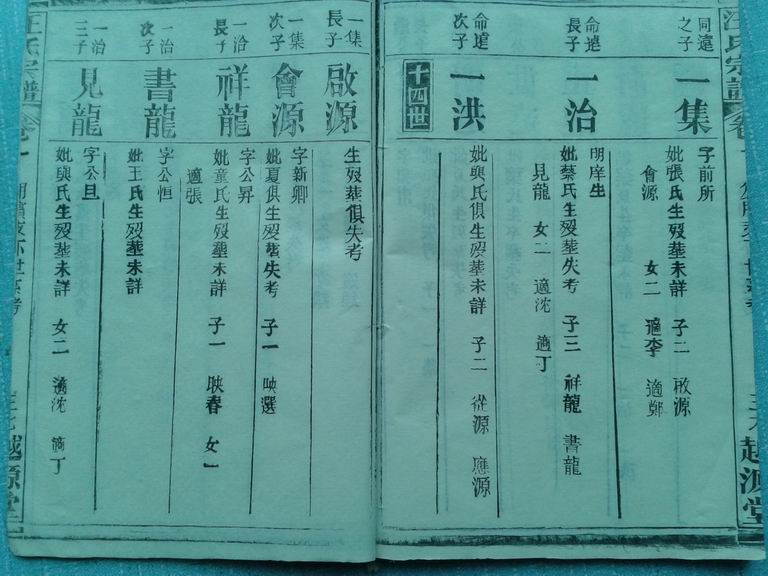 汪氏宗譜
越源堂
同遠之子
一集
字前所
妣張氏生歿葬未詳 子二 啟源
會源 女二 適李 適鄭
命遠長子
一治
明庠生
妣蔡氏生歿葬失考 子三 祥龍 書龍
見龍 女二 適沈 適丁
命遠次子
一洪
妣吳氏俱生歿葬未詳 子二 從源 應源
十四世
一集長子
啟源
生歿葬俱失考
一集次子
會源
字新卿
妣夏俱生歿葬失考 子一 映選
一治長子
祥龍
字公昇
妣童氏生歿葬未詳 子一 映春 女一
適張
一治次子
書龍
字公恒
妣王氏生歿葬未詳
一治三子
見龍
字公旦
妣吳氏生歿葬未詳 女二 適沈 適丁
汪氏宗譜
越源堂